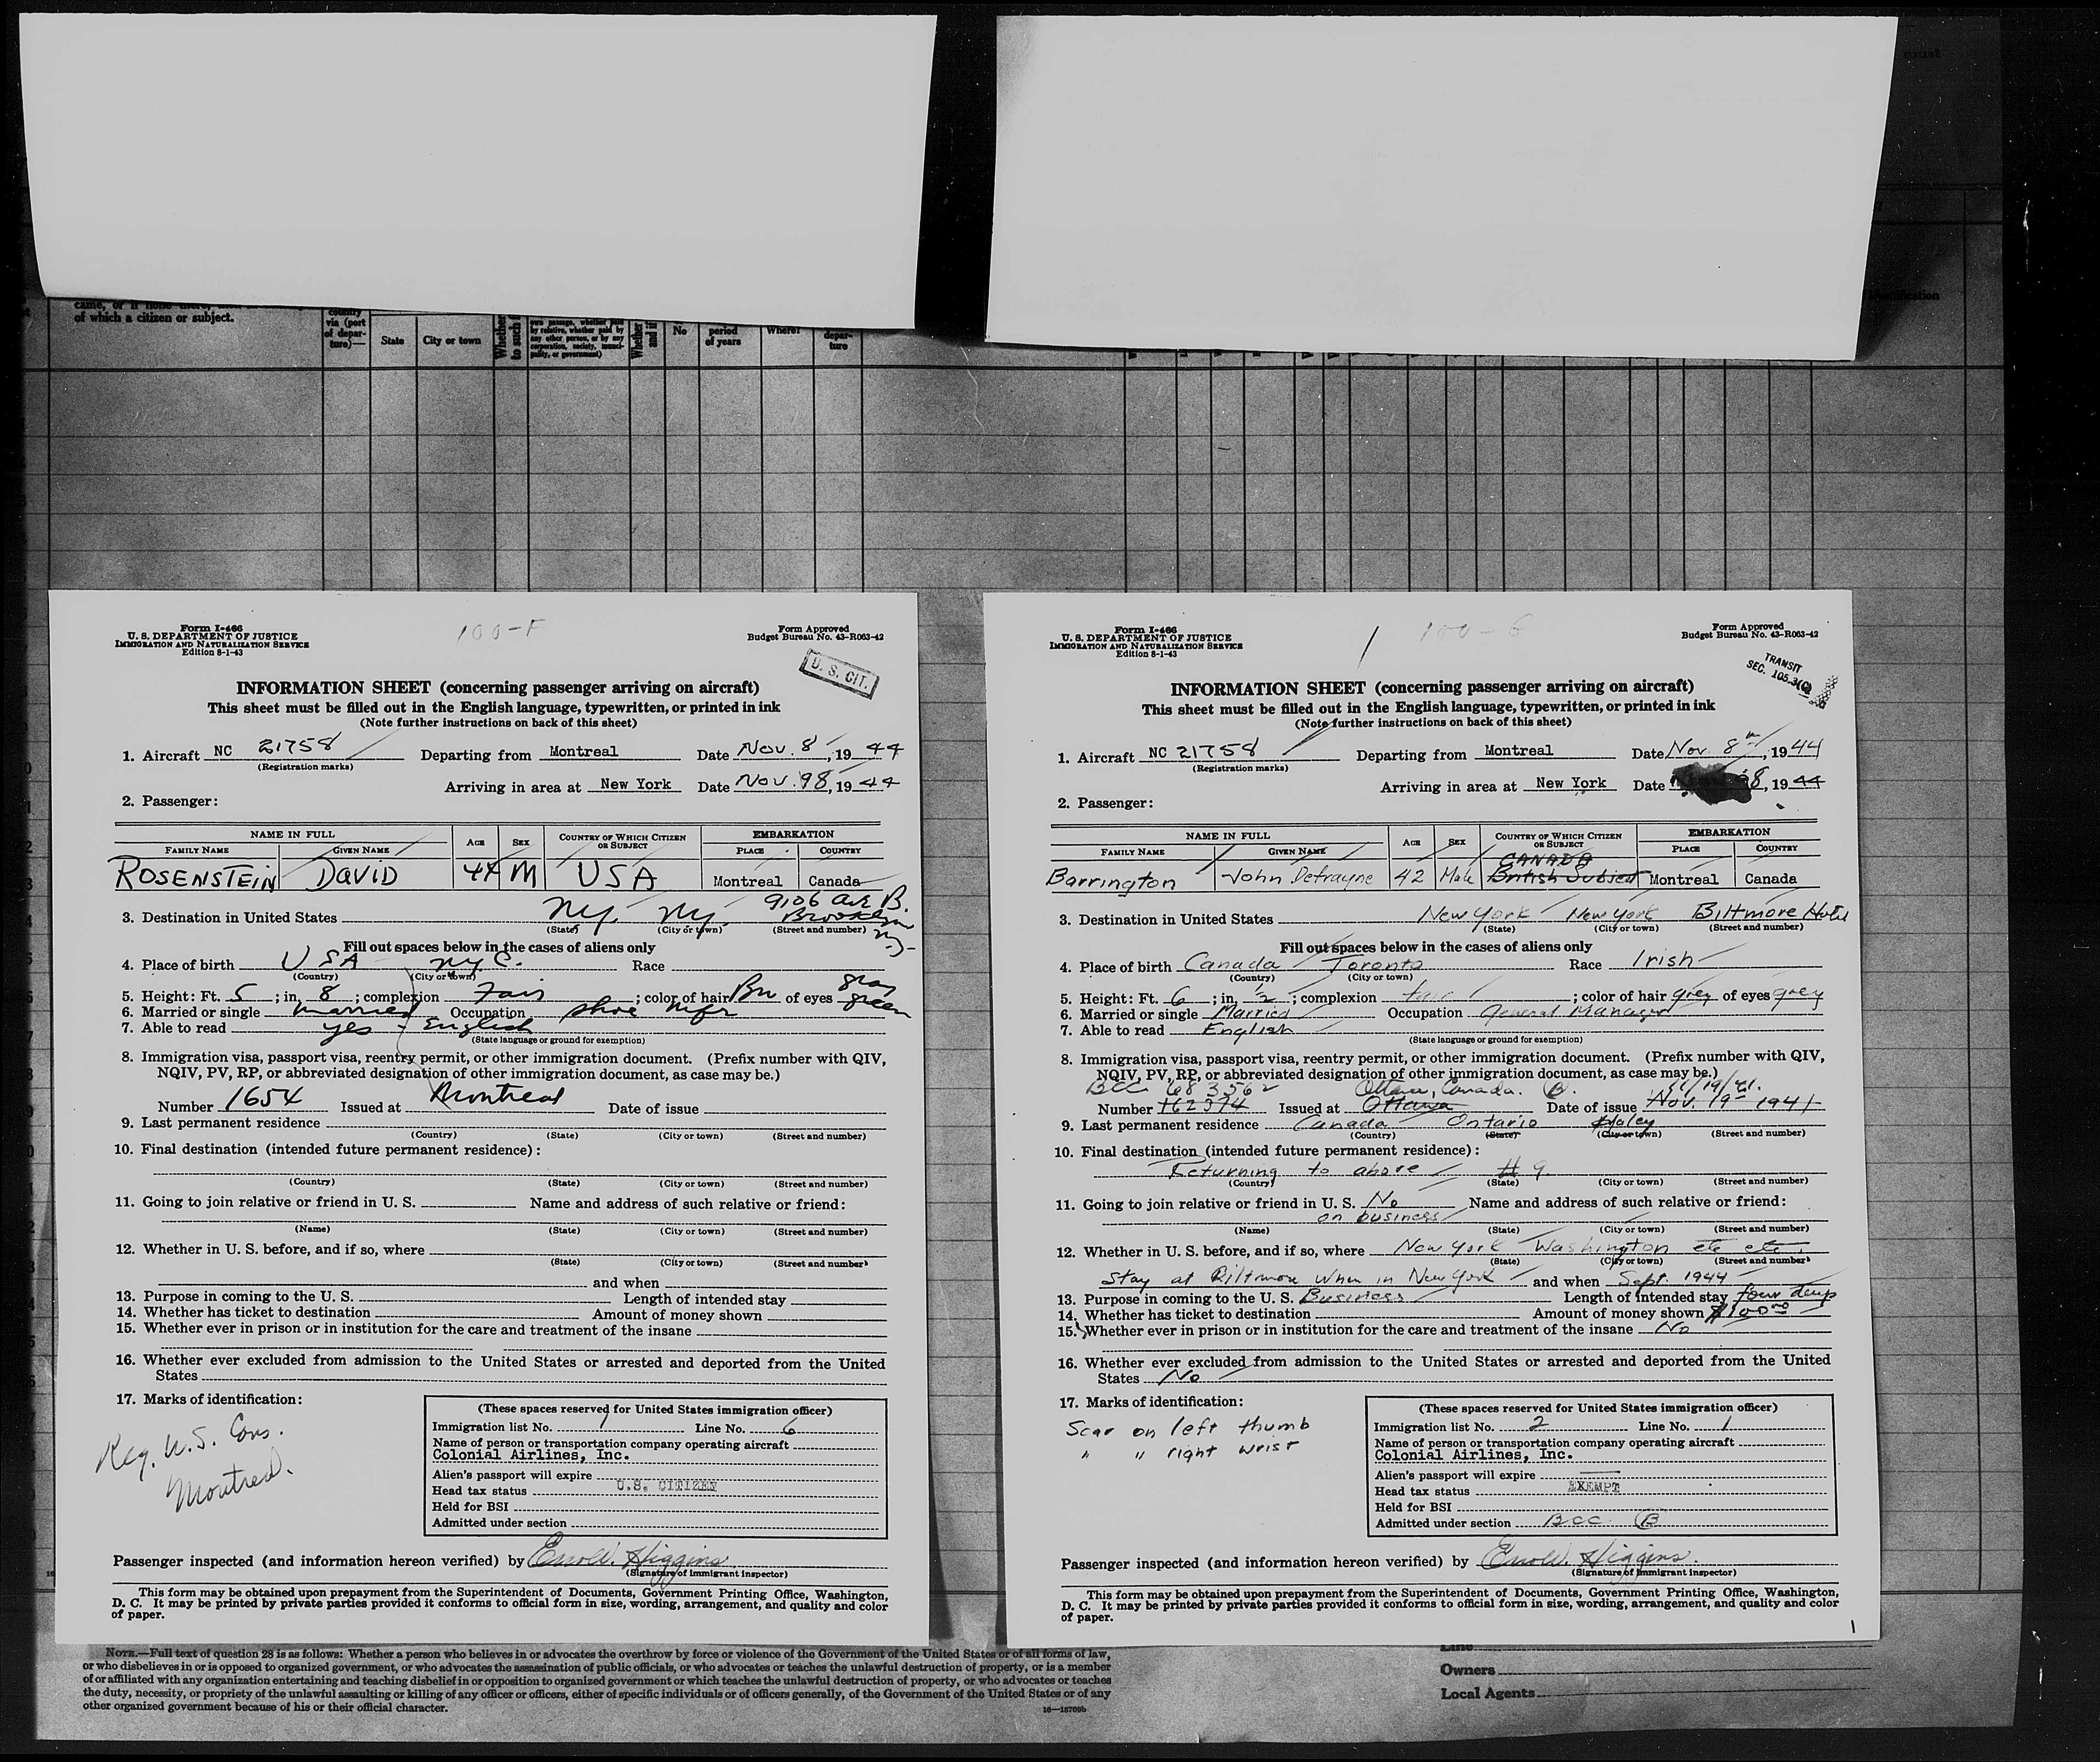 of which a citizen or subject.
country via (port of departure)—
State
City or town
No
period of years
Where?
departure
Form I-466
U. S. DEPARTMENT OF JUSTICE
IMMIGRATION AND NATURALIZATION SERVICE
Edition 8-1-43
100-F
Form Approved
Budget Bureau No. 43-R063-42
U. S. CIT.
INFORMATION SHEET (concerning passenger arriving on aircraft)
This sheet must be filled out in the English language, typewritten, or printed in ink
(Note further instructions on back of this sheet)
1. Aircraft NC 21758 Departing from Montreal Date Nov. 8, 1944
(Registration marks)
Arriving in area at New York Date Nov. 8, 1944
2. Passenger:
NAME IN FULL AGE SEX COUNTRY OF WHICH CITIZEN OR SUBJECT EMBARKATION
FAMILY NAME GIVEN NAME PLACE COUNTRY
ROSENSTEIN DAVID 44 M USA Montreal Canada
9106 Ave B.
3. Destination in United States N.Y. N.Y. Brooklyn N.Y.
(State) (City or town) (Street and number)
Fill out spaces below in the cases of aliens only
4. Place of birth USA N.Y.C. Race
(Country) (City or town)
5. Height: Ft. 5; in. 8; complexion Fair; color of hair Brn of eyes gray green
6. Married or single married Occupation shoe mfr
7. Able to read yes - English
(State language or ground for exemption)
8. Immigration visa, passport visa, reentry permit, or other immigration document. (Prefix number with QIV,
NQIV, PV, RP, or abbreviated designation of other immigration document, as case may be.)
Number 1654 Issued at Montreal Date of issue
9. Last permanent residence
(Country) (State) (City or town) (Street and number)
10. Final destination (intended future permanent residence):
(Country) (State) (City or town) (Street and number)
11. Going to join relative or friend in U. S. Name and address of such relative or friend:
(Name) (State) (City or town) (Street and number)
12. Whether in U. S. before, and if so, where
(State) (City or town) (Street and number)
and when
13. Purpose in coming to the U. S. Length of intended stay
14. Whether has ticket to destination Amount of money shown
15. Whether ever in prison or in institution for the care and treatment of the insane
16. Whether ever excluded from admission to the United States or arrested and deported from the United
States
17. Marks of identification:
Reg. U.S. Cons.
Montreal.
(These spaces reserved for United States immigration officer)
Immigration list No. 1 Line No. 6
Name of person or transportation company operating aircraft
Colonial Airlines, Inc.
Alien's passport will expire
Head tax status U.S. CITIZEN
Held for BSI
Admitted under section
Passenger inspected (and information hereon verified) by Errol W. Higgins
(Signature of immigrant inspector)
This form may be obtained upon prepayment from the Superintendent of Documents, Government Printing Office, Washington,
D. C. It may be printed by private parties provided it conforms to official form in size, wording, arrangement, and quality and color
of paper.
Form I-466
U. S. DEPARTMENT OF JUSTICE
IMMIGRATION AND NATURALIZATION SERVICE
Edition 8-1-43
100-G
Form Approved
Budget Bureau No. 43-R063-42
TRANSIT
SEC. 105.3(C)
INFORMATION SHEET (concerning passenger arriving on aircraft)
This sheet must be filled out in the English language, typewritten, or printed in ink
(Note further instructions on back of this sheet)
1. Aircraft NC 21758 Departing from Montreal Date Nov. 8th, 1944
(Registration marks)
Arriving in area at New York Date 8, 1944
2. Passenger:
NAME IN FULL AGE SEX COUNTRY OF WHICH CITIZEN OR SUBJECT EMBARKATION
FAMILY NAME GIVEN NAME PLACE COUNTRY
CANADA
Barrington John Defrayne 42 Male British Subject Montreal Canada
3. Destination in United States New York New York Biltmore Hotel
(State) (City or town) (Street and number)
Fill out spaces below in the cases of aliens only
4. Place of birth Canada Toronto Race Irish
(Country) (City or town)
5. Height: Ft. 6; in. ½; complexion fair; color of hair grey of eyes grey
6. Married or single Married Occupation General Manager
7. Able to read English
(State language or ground for exemption)
8. Immigration visa, passport visa, reentry permit, or other immigration document. (Prefix number with QIV,
NQIV, PV, RP, or abbreviated designation of other immigration document, as case may be.)
BCC 683562 Ottawa, Canada. B. 11/19/41.
Number 162374 Issued at Ottawa Date of issue Nov. 19th 1941
9. Last permanent residence Canada Ontario Haley
(Country) (State) (City or town) (Street and number)
10. Final destination (intended future permanent residence):
Returning to above # 9
(Country) (State) (City or town) (Street and number)
11. Going to join relative or friend in U. S. No Name and address of such relative or friend:
on business
(Name) (State) (City or town) (Street and number)
12. Whether in U. S. before, and if so, where New York Washington etc etc.
(State) (City or town) (Street and number)
Stay at Biltmore when in New York and when Sept. 1944
13. Purpose in coming to the U. S. Business Length of intended stay four days
14. Whether has ticket to destination Amount of money shown $100.00
15. Whether ever in prison or in institution for the care and treatment of the insane No
16. Whether ever excluded from admission to the United States or arrested and deported from the United
States No
17. Marks of identification:
Scar on left thumb
" " right wrist
(These spaces reserved for United States immigration officer)
Immigration list No. 2 Line No. 1
Name of person or transportation company operating aircraft
Colonial Airlines, Inc.
Alien's passport will expire
Head tax status EXEMPT
Held for BSI
Admitted under section BCC B
Passenger inspected (and information hereon verified) by Errol W. Higgins.
(Signature of immigrant inspector)
This form may be obtained upon prepayment from the Superintendent of Documents, Government Printing Office, Washington,
D. C. It may be printed by private parties provided it conforms to official form in size, wording, arrangement, and quality and color
of paper.
NOTE.—Full text of question 28 is as follows: Whether a person who believes in or advocates the overthrow by force or violence of the Government of the United States or of all forms of law,
or who disbelieves in or is opposed to organized government, or who advocates the assassination of public officials, or who advocates or teaches the unlawful destruction of property, or is a member
of or affiliated with any organization entertaining and teaching disbelief in or opposition to organized government or which teaches the unlawful destruction of property, or who advocates or teaches
the duty, necessity, or propriety of the unlawful assaulting or killing of any officer or officers, either of specific individuals or of officers generally, of the Government of the United States or of any
other organized government because of his or their official character.
16—18709b
Line
Owners
Local Agents